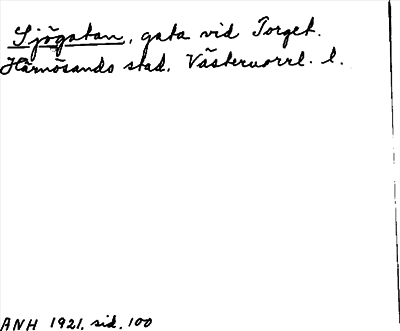 Sjögatan, gata vid Torget.
Härnösands stad. Västernorrl. l.
ANH 1921, sid. 100